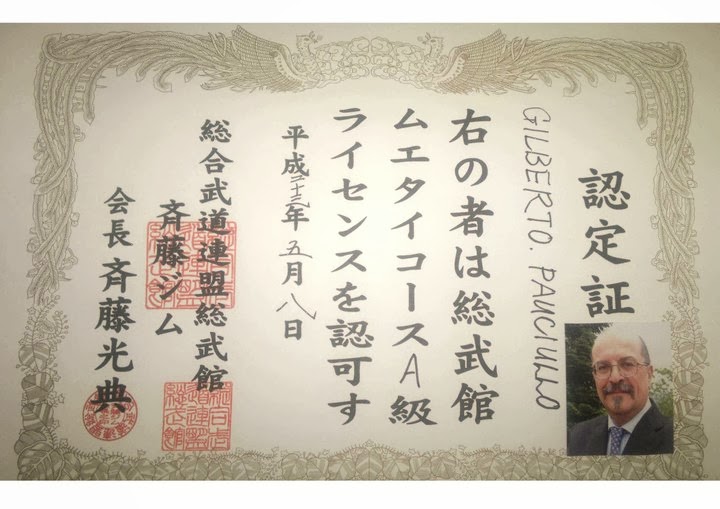 認定証
GILBERTO. PAUCIULLO
右の者は総武館
ムエタイコースA級
ライセンスを認可す
平成二十三年五月八日
総合武道連盟総武館
斉藤ジム
会長斉藤光典